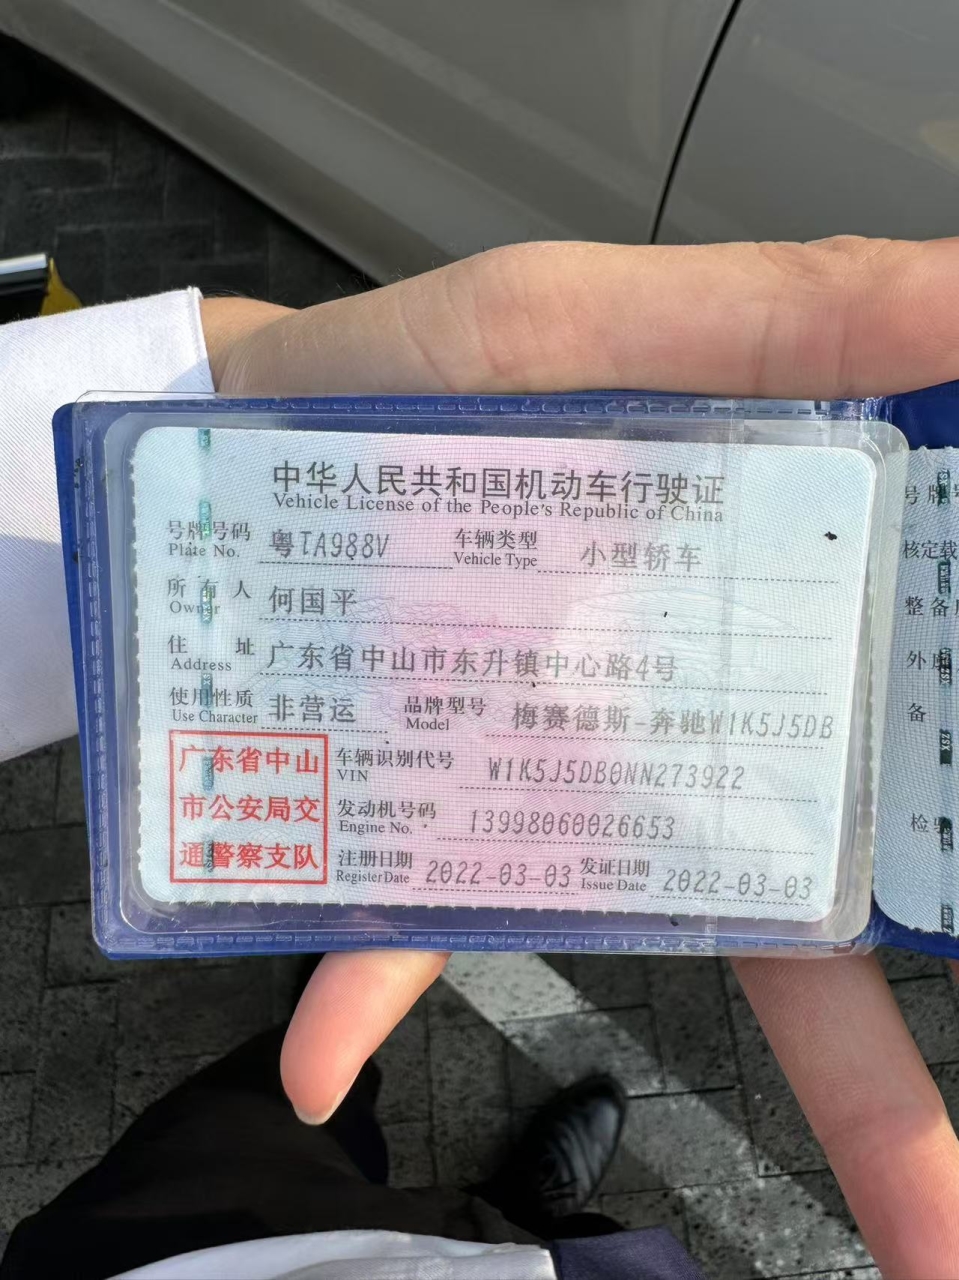 中华人民共和国机动车行驶证
Vehicle License of the People's Republic of China
号牌号码 粤TA988V 车辆类型 小型轿车
Plate No. Vehicle Type
所有人 何国平
Owner
住址 广东省中山市东升镇中心路4号
Address
使用性质 非营运 品牌型号 梅赛德斯-奔驰W1K5J5DB
Use Character Model
广东省中山
市公安局交
通警察支队
车辆识别代号 W1K5J5DB0NN273922
VIN
发动机号码 13998060026653
Engine No.
注册日期 2022-03-03 发证日期 2022-03-03
Register Date Issue Date
号牌号
核定载
整备
外
备
检验